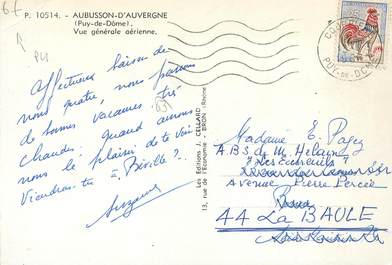 6F
P. 10514. - AUBUSSON-D'AUVERGNE
(Puy-de-Dôme).
Vue générale aérienne.
Affectueux baisers de
nous quatre, nous passons
de bonnes vacances, très
chaudes. Quand aurons-
nous le plaisir de te voir
Viendras-tu à Préville?
Suzanne
Les Editions J. CELLARD
13, rue de l'Economie - BRON (Rhône)
COURPIÈRE
PUY-DE-DÔME
Madame E. Pagez
A.B.S de M. Helary
"Les Ecureuils"
Avenue Pierre Percée
44 La BAULE